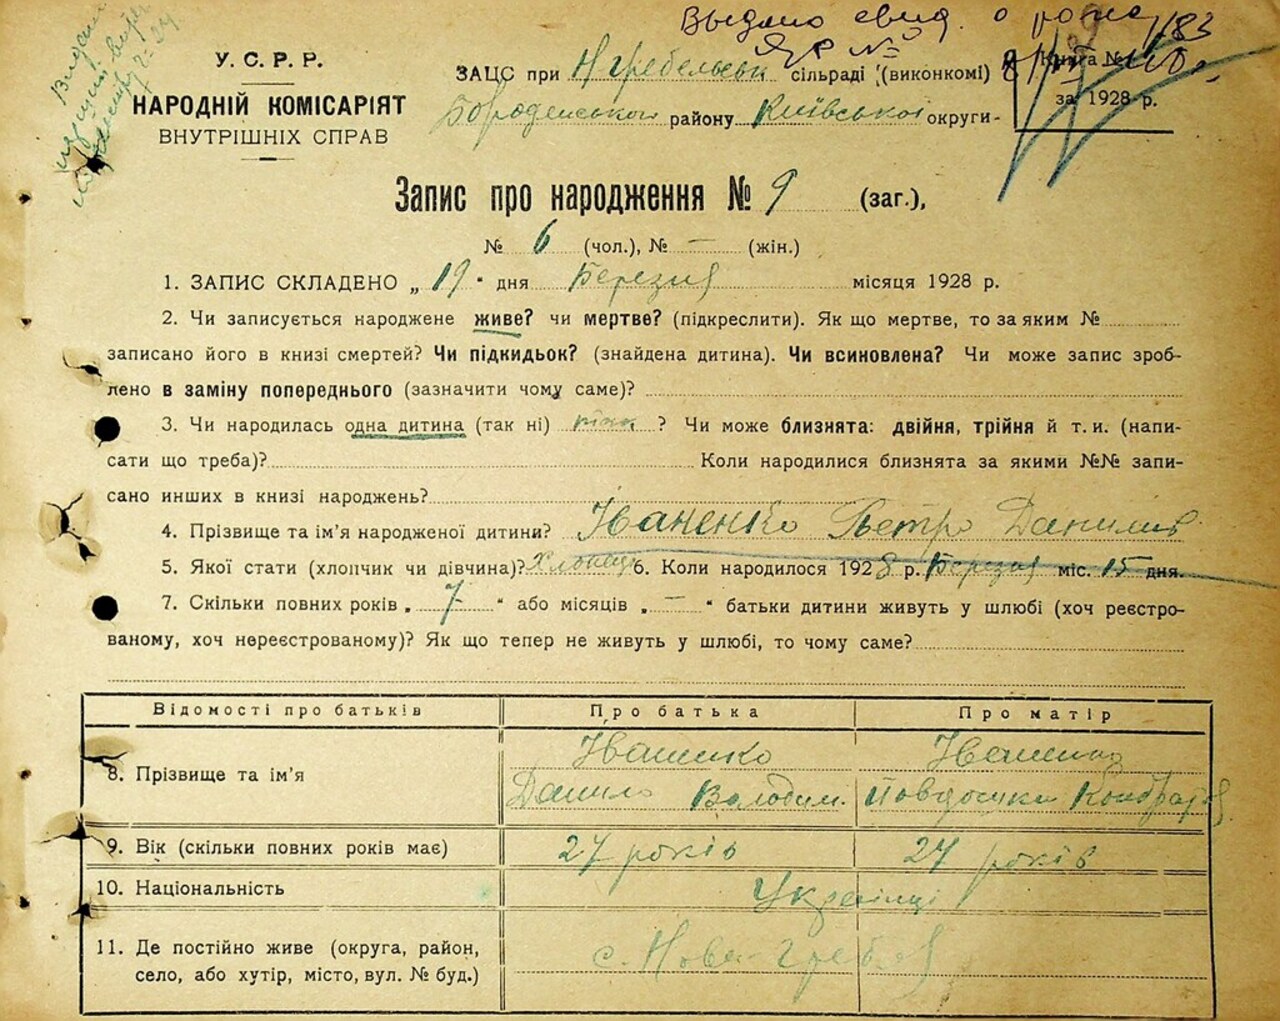 Выдано свид. о рожд.
У. С. Р. Р.
НАРОДНІЙ КОМІСАРІЯТ
ВНУТРІШНІХ СПРАВ
ЗАЦС при Н Гребельськ сільраді (виконкомі)
Бородянського району Київської округи-
Книга №
за 1928 р.
Запис про народження № 9 (заг.),
№ 6 (чол.), № — (жін.)
1. ЗАПИС СКЛАДЕНО „ 19 “ дня Березня місяця 1928 р.
2. Чи записується народжене живе? чи мертве? (підкреслити). Як що мертве, то за яким №
записано його в книзі смертей? Чи підкидьок? (знайдена дитина). Чи всиновлена? Чи може запис зроб-
лено в заміну попереднього (зазначити чому саме)?
3. Чи народилась одна дитина (так ні) так ? Чи може близнята: двійня, трійня й т. и. (напи-
сати що треба)? Коли народилися близнята за якими №№ запи-
сано инших в книзі народжень?
4. Прізвище та ім'я народженої дитини? Іваненко Петро Данилив
5. Якої стати (хлопчик чи дівчина)? Хлопець 6. Коли народилося 1928 р. Березня міс. 15 дня.
7. Скільки повних років „ 7 “ або місяців „ — “ батьки дитини живуть у шлюбі (хоч реєстро-
ваному, хоч нереєстрованому)? Як що тепер не живуть у шлюбі, то чому саме?
Відомості про батьків Про батька Про матір
8. Прізвище та ім'я
Іваненко Іваненко
Данило Володим. Кондратов.
9. Вік (скільки повних років має) 27 років 27 років
10. Національність Українці
11. Де постійно живе (округа, район,
село, або хутір, місто, вул. № буд.)
с. Нова-Гребля